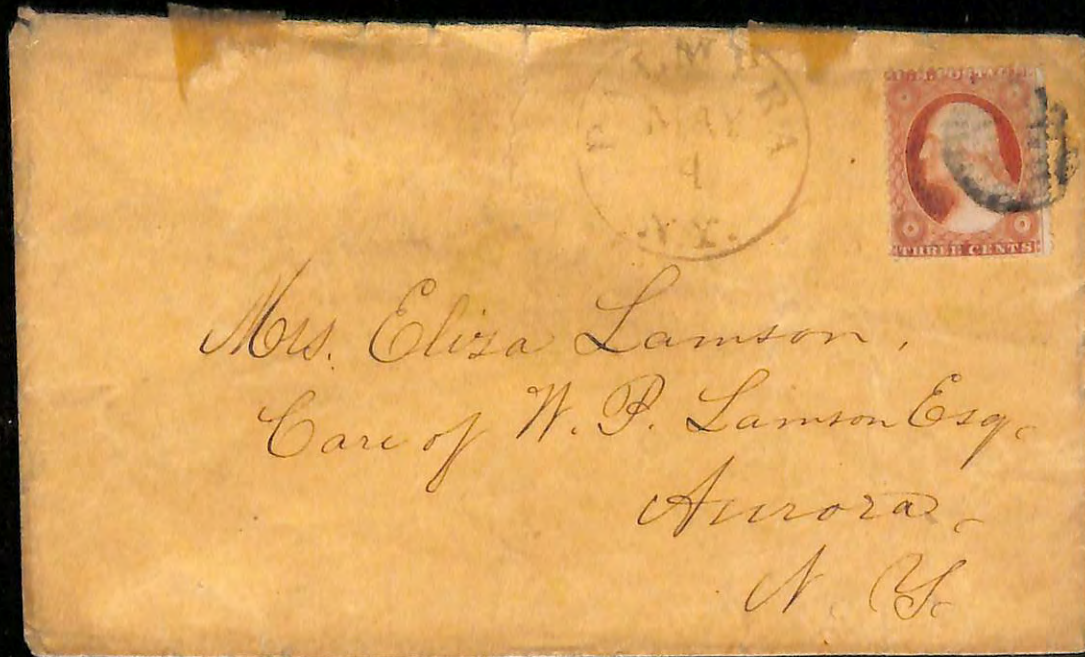 PALMYRA
MAY
4
N.Y.
THREE CENTS
Mrs. Eliza Lamson,
Care of W. P. Lamson Esq.
Aurora,
N. Y.